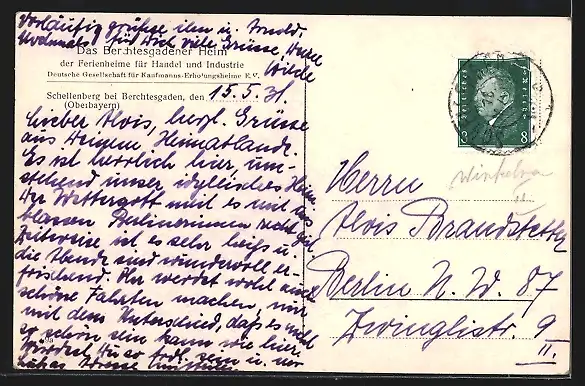 Vorläufig grüße ihn u.
Nochmals für Dich viele Grüsse, Deine
Das Berchtesgadener Heim
der Ferienheime für Handel und Industrie
Deutsche Gesellschaft für Kaufmanns-Erholungsheime E. V.
Schellenberg bei Berchtesgaden, den 15.5.31
(Oberbayern)
Lieber Alois, herzl. Grüsse
aus Heimatlande.
Es ist herrlich hier, um-
stehend unser idyllisches Heim
Der Wettergott meint es mit uns
blassen Berlinerinnen recht gut
Zeitweise ist es sehr heiß u.
die Abende sind wundervoll er-
frischend. Ihr werdet wohl auch
schöne Fahrten machen, nur
mit dem Unterschied, daß es nicht
so schön sein kann wie hier.
Würdest Du so frdl. sein u. mir
Adresse
Herrn
Alois Brandstetter
Berlin N.W. 87
Zwinglistr. 9
II.
DEUTSCHES REICH
8 8